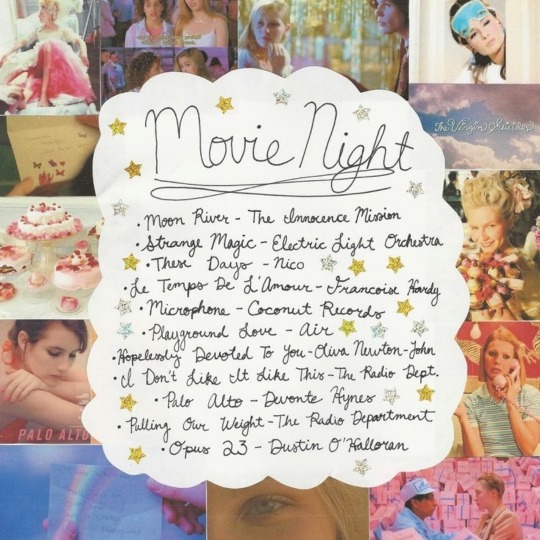 The Virgin Suicides
Movie Night
• Moon River - The Innocence Mission
• Strange Magic - Electric Light Orchestra
• These Days - Nico
• Le Temps De L'Amour - Francoise Hardy
• Microphone - Coconut Records
• Playground Love - Air
• Hopelessly Devoted To You - Oliva Newton-John
• I Don't Like It Like This - The Radio Dept.
• Palo Alto - Devonte Hynes
• Pulling Our Weight - The Radio Department
• Opus 23 - Dustin O'Halloran
PALO ALTO